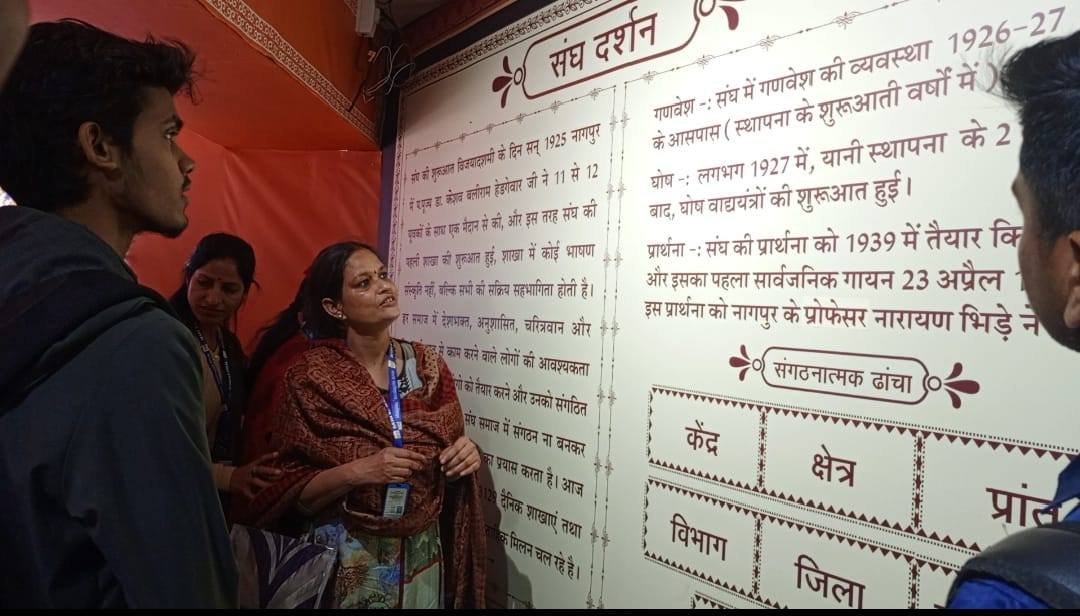 संघ दर्शन
संघ की शुरूआत विजयादशमी के दिन सन् 1925 नागपुर
में प.पूज्य डा. केशव बलीराम हेडगेवार जी ने 11 से 12
युवकों के साथ एक मैदान से की, और इस तरह संघ की
पहली शाखा की शुरूआत हुई, शाखा में कोई भाषण
संस्कृति नहीं, बल्कि सभी की सक्रिय सहभागिता होती है।
समाज में देशभक्त, अनुशासित, चरित्रवान और
से काम करने वाले लोगों की आवश्यकता
को तैयार करने और उनको संगठित
संघ समाज में संगठन ना बनकर
का प्रयास करता है। आज
दैनिक शाखाएं तथा
मिलन चल रहे है।
गणवेश -: संघ में गणवेश की व्यवस्था 1926-27
के आसपास ( स्थापना के शुरूआती वर्षों में
घोष -: लगभग 1927 में, यानी स्थापना के 2
बाद, घोष वाद्ययंत्रों की शुरूआत हुई।
प्रार्थना -: संघ की प्रार्थना को 1939 में तैयार
और इसका पहला सार्वजनिक गायन 23 अप्रैल
इस प्रार्थना को नागपुर के प्रोफेसर नारायण भिड़े ने
संगठनात्मक ढांचा
केंद्र
क्षेत्र
प्रांत
विभाग
जिला